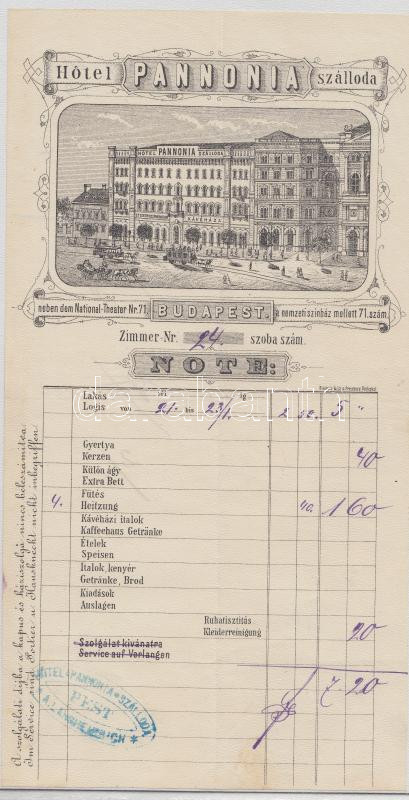 Hôtel PANNONIA szálloda
HÔTEL PANNONIA SZÁLLODA
KÁVÉHÁZ
neben dem National-Theater Nr. 71. BUDAPEST. a nemzeti szinház mellett 71. szám.
Zimmer-Nr. 24 szoba szám.
NOTE:
Lakás tól ig
Logis von 21. bis 23/1. 2 5 "
Gyertya
Kerzen 40
Külön ágy
Extra Bett
Fütés
4. Heitzung 40. 1 60
Kávéházi italok
Kaffeehaus Getränke
Ételek
Speisen
Italok, kenyér
Getränke, Brod
Kiadások
Auslagen
Ruhatisztitás
Kleiderreinigung 20
Szolgálat kivánatra
Service auf Verlangen
7. 20
HÔTEL PANNONIA SZÁLLODA
PEST
A szolgálati dijba a kapus és háziszolga nincs beleszámitva.
Im Service sind Portier u. Hausknecht nicht inbegriffen.
darabanth